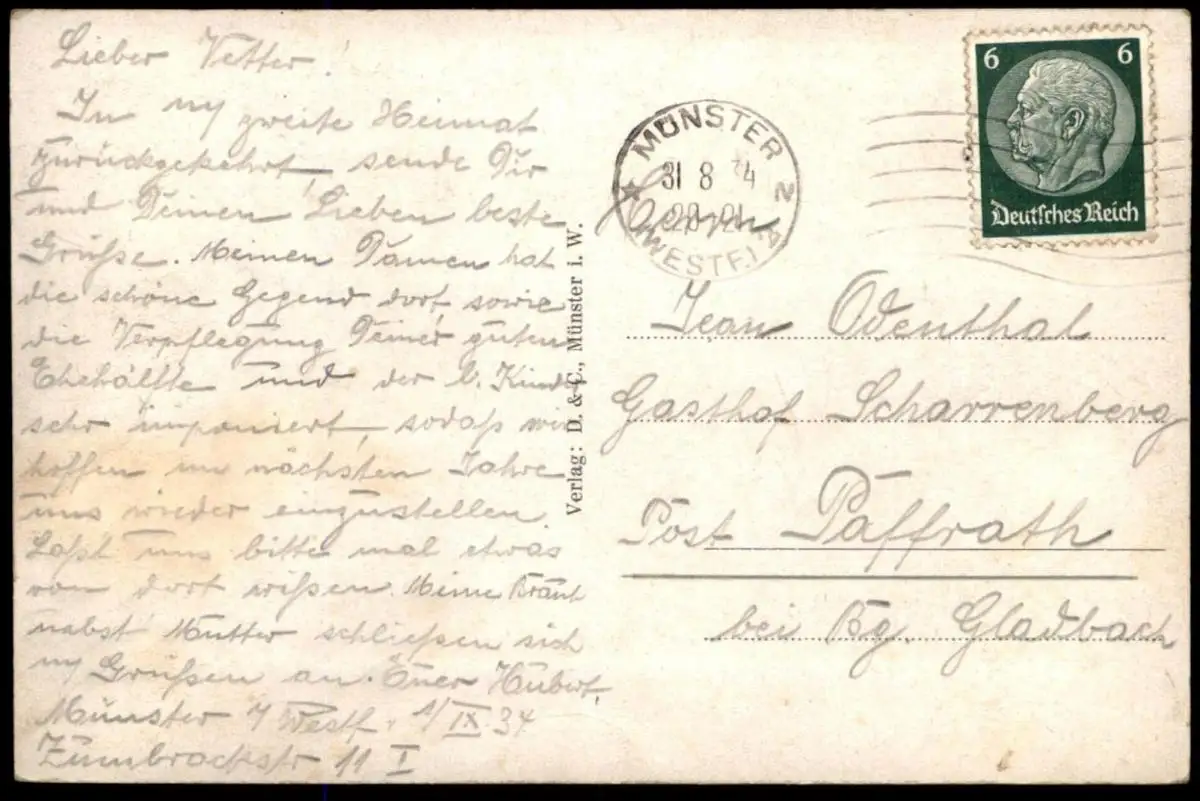 Lieber Vetter!
In my zweite Heimat
zurückgekehrt, sende Dir
und Deinen Lieben beste
Grüße. Meinen Damen hat
die schöne Gegend dort, sowie
die Verpflegung Deiner guten
Ehehälfte und der l. Kinder
sehr imponiert, sodaß wir
hoffen im nächsten Jahre
uns wieder einzustellen.
Laßt uns bitte mal etwas
von dort wißen. Meine Braut
nabst Mutter schließen sich
my Grüßen an. Euer Hubert.
Münster / Westf. 1/IX 34
Zumbrockstr 11 I
Verlag: D. & C., Münster i. W.
MÜNSTER 2
31 8 34
(WESTF.)
6 6
Deutsches Reich
Herrn
Jean Odenthal
Gasthof Scharrenberg
Post Paffrath
bei Bg. Gladbach